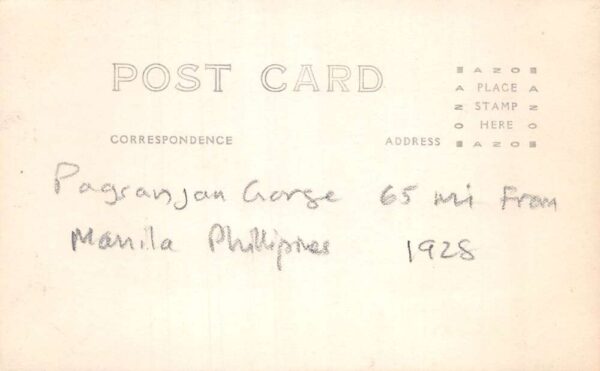 POST CARD
AZO
A PLACE A
Z STAMP Z
O HERE O
AZO
CORRESPONDENCE ADDRESS
Pagsanjan Gorge 65 mi From
Manila Phillipines 1928